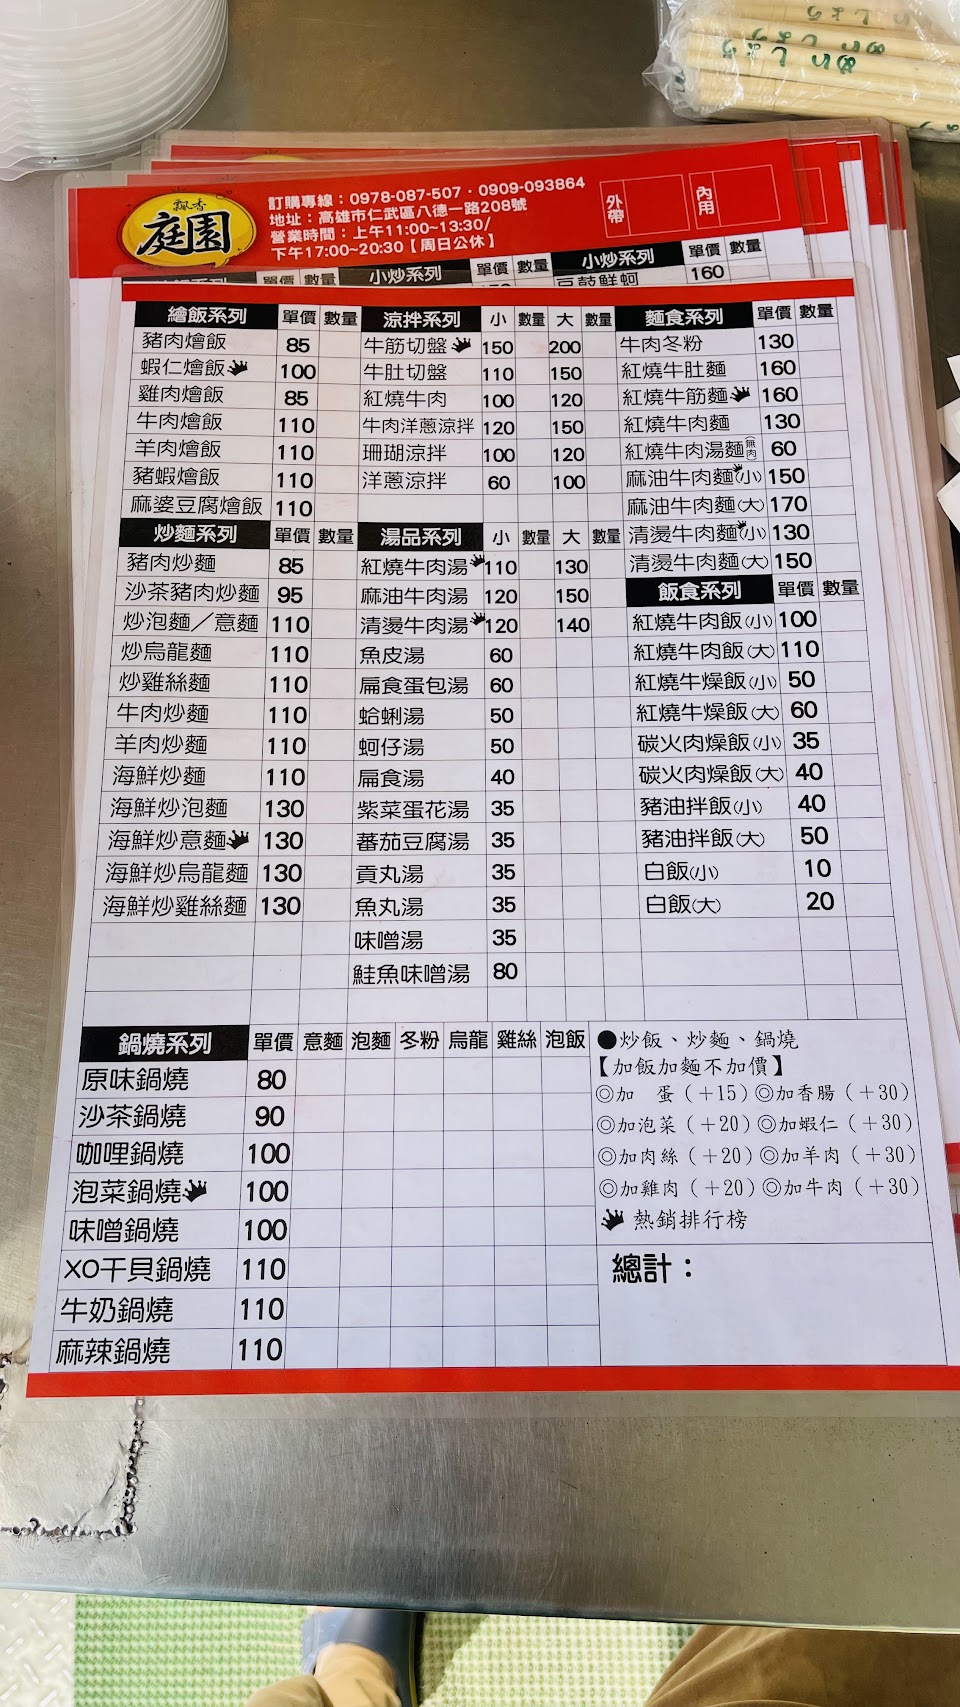 めいしょう
めいしょう
飄香
庭園
訂購專線：0978-087-507・0909-093864
地址：高雄市仁武區八德一路208號
營業時間：上午11:00~13:30/
下午17:00~20:30【周日公休】
外帶
內用
單價 數量 小炒系列 單價 數量 小炒系列 單價 數量
豆鼓鮮蚵 160
繪飯系列 單價 數量
豬肉燴飯 85
蝦仁燴飯 100
雞肉燴飯 85
牛肉燴飯 110
羊肉燴飯 110
豬蝦燴飯 110
麻婆豆腐燴飯 110
炒麵系列 單價 數量
豬肉炒麵 85
沙茶豬肉炒麵 95
炒泡麵／意麵 110
炒烏龍麵 110
炒雞絲麵 110
牛肉炒麵 110
羊肉炒麵 110
海鮮炒麵 110
海鮮炒泡麵 130
海鮮炒意麵 130
海鮮炒烏龍麵 130
海鮮炒雞絲麵 130
涼拌系列 小 數量 大 數量
牛筋切盤 150 200
牛肚切盤 110 150
紅燒牛肉 100 120
牛肉洋蔥涼拌 120 150
珊瑚涼拌 100 120
洋蔥涼拌 60 100
湯品系列 小 數量 大 數量
紅燒牛肉湯 110 130
麻油牛肉湯 120 150
清燙牛肉湯 120 140
魚皮湯 60
扁食蛋包湯 60
蛤蜊湯 50
蚵仔湯 50
扁食湯 40
紫菜蛋花湯 35
蕃茄豆腐湯 35
貢丸湯 35
魚丸湯 35
味噌湯 35
鮭魚味噌湯 80
麵食系列 單價 數量
牛肉冬粉 130
紅燒牛肚麵 160
紅燒牛筋麵 160
紅燒牛肉麵 130
紅燒牛肉湯麵(無肉) 60
麻油牛肉麵(小) 150
麻油牛肉麵(大) 170
清燙牛肉麵(小) 130
清燙牛肉麵(大) 150
飯食系列 單價 數量
紅燒牛肉飯(小) 100
紅燒牛肉飯(大) 110
紅燒牛燥飯(小) 50
紅燒牛燥飯(大) 60
碳火肉燥飯(小) 35
碳火肉燥飯(大) 40
豬油拌飯(小) 40
豬油拌飯(大) 50
白飯(小) 10
白飯(大) 20
鍋燒系列 單價 意麵 泡麵 冬粉 烏龍 雞絲 泡飯
原味鍋燒 80
沙茶鍋燒 90
咖哩鍋燒 100
泡菜鍋燒 100
味噌鍋燒 100
XO干貝鍋燒 110
牛奶鍋燒 110
麻辣鍋燒 110
●炒飯、炒麵、鍋燒
【加飯加麵不加價】
◎加　蛋（＋15）◎加香腸（＋30）
◎加泡菜（＋20）◎加蝦仁（＋30）
◎加肉絲（＋20）◎加羊肉（＋30）
◎加雞肉（＋20）◎加牛肉（＋30）
熱銷排行榜
總計：